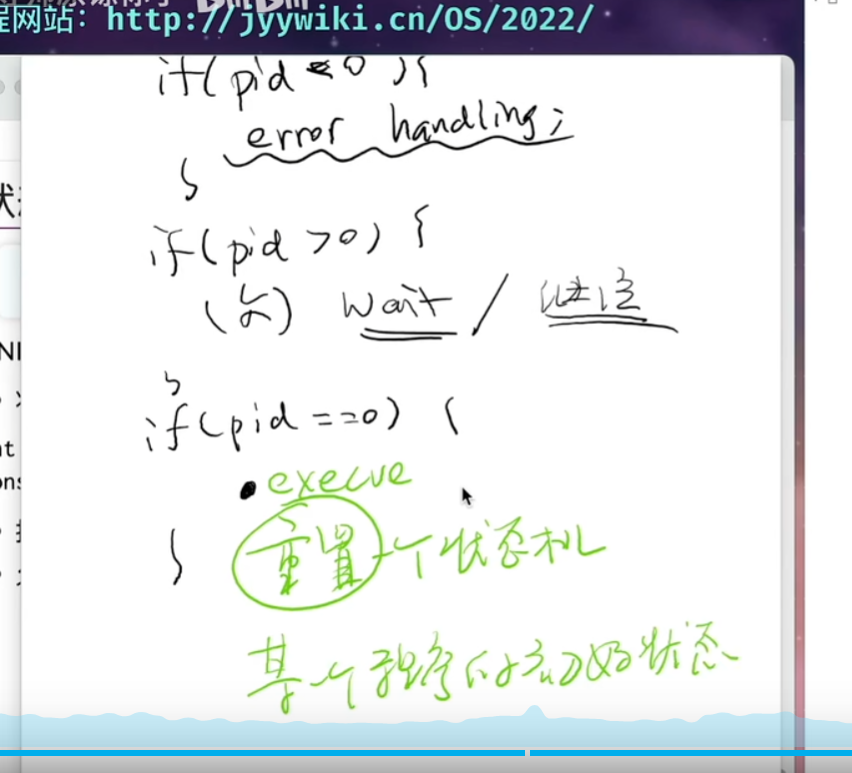 程网站: http://jyywiki.cn/OS/2022/
if(pid < 0) {
error handling;
}
if(pid >0) {
(父) wait /
}
if(pid ==0) {
execve
重置一个状态机
}
某个程序的初始状态